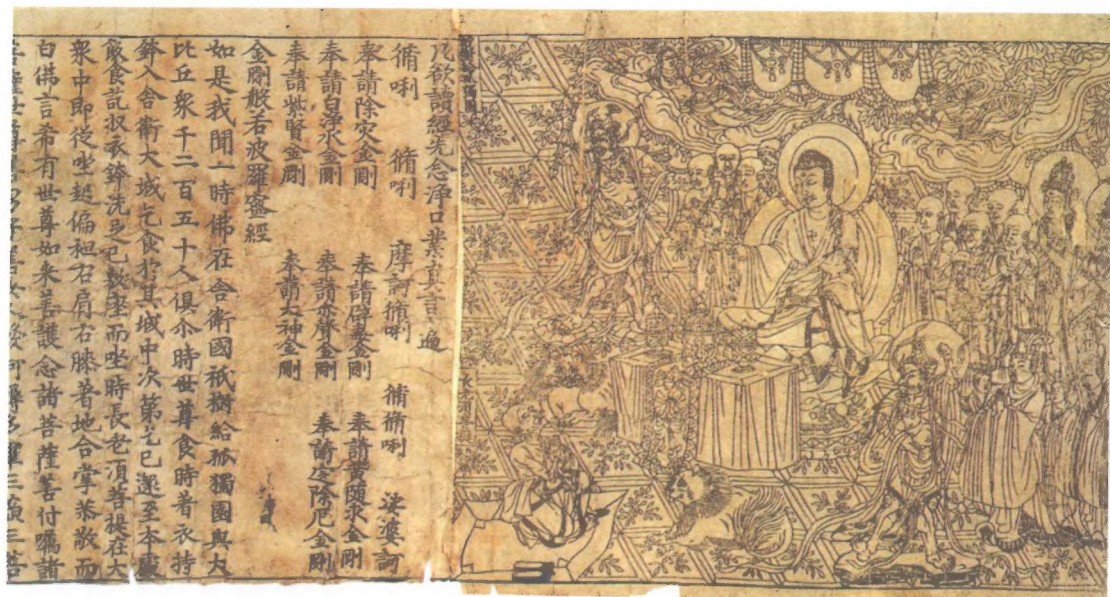 凡欲讀經先念淨口業真言遍
脩唎 脩唎 摩訶脩唎 脩脩唎 娑婆訶
奉請除灾金剛 奉請辟毒金剛 奉請黄隨求金剛
奉請白淨水金剛 奉請赤聲金剛 奉請定除厄金剛
奉請紫賢金剛 奉請大神金剛
金剛般若波羅蜜經
如是我聞一時佛在舍衛國祇樹給孤獨園與大
比丘衆千二百五十人俱尒時世尊食時著衣持
鉢入舍衛大城乞食於其城中次第乞已還至本處
飯食訖收衣鉢洗足已敷座而坐時長老湏菩提在大
衆中即從坐起偏袒右肩右膝著地合掌恭敬而
白佛言希有世尊如来善護念諸菩薩善付囑諸